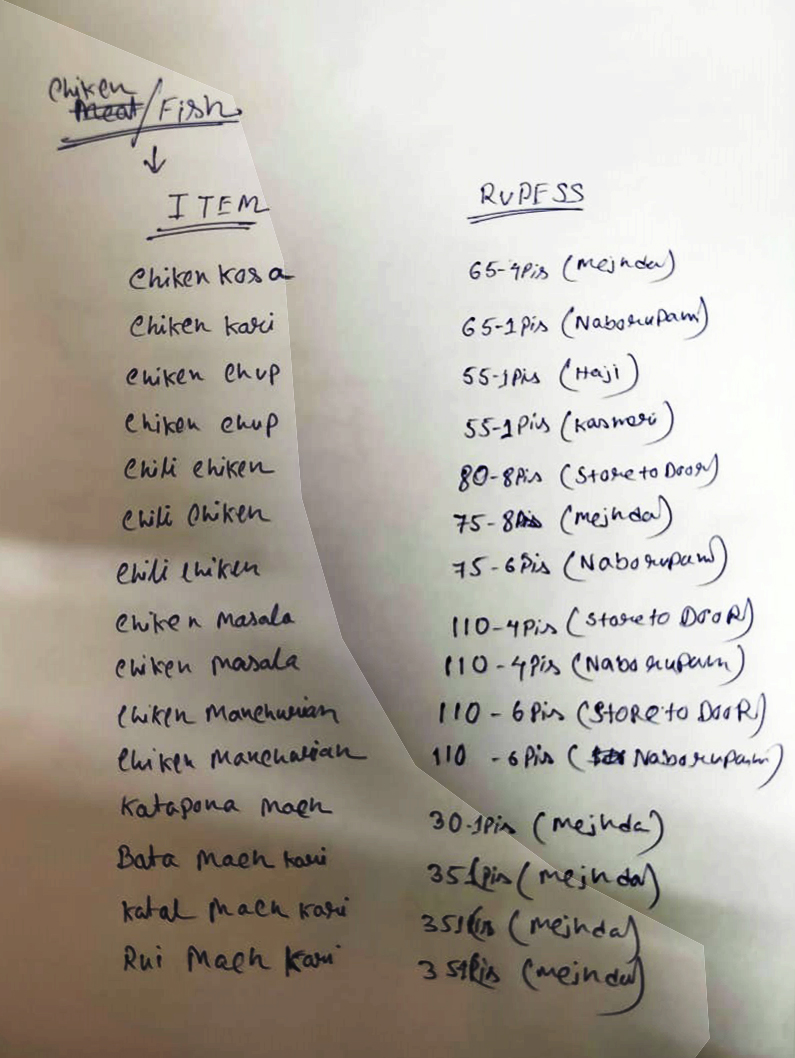 Chiken / Fish
ITEM RUPESS
Chiken Kosa 65-4Pis (Mejhda)
Chiken Kari 65-1Pis (Naborupam)
Chiken Chup 55-1Pis (Haji)
Chiken Chup 55-1Pis (Kasmori)
Chili Chiken 80-8Pis (Store to Door)
Chili Chiken 75-8Pis (Mejhda)
Chili Chiken 75-6Pis (Naborupam)
Chiken Masala 110-4Pis (Store to DooR)
Chiken Masala 110-4Pis (Naborupam)
Chiken Manchurian 110-6Pis (SToRe to DooR)
Chiken Manchurian 110-6Pis (Naborupam)
Katapona Mach 30-1Pis (Mejhda)
Bata Mach Kari 35 1Pis (Mejhda)
Katal Mach Kari 35 1Pis (Mejhda)
Rui Mach Kari 35 1Pis (Mejhda)